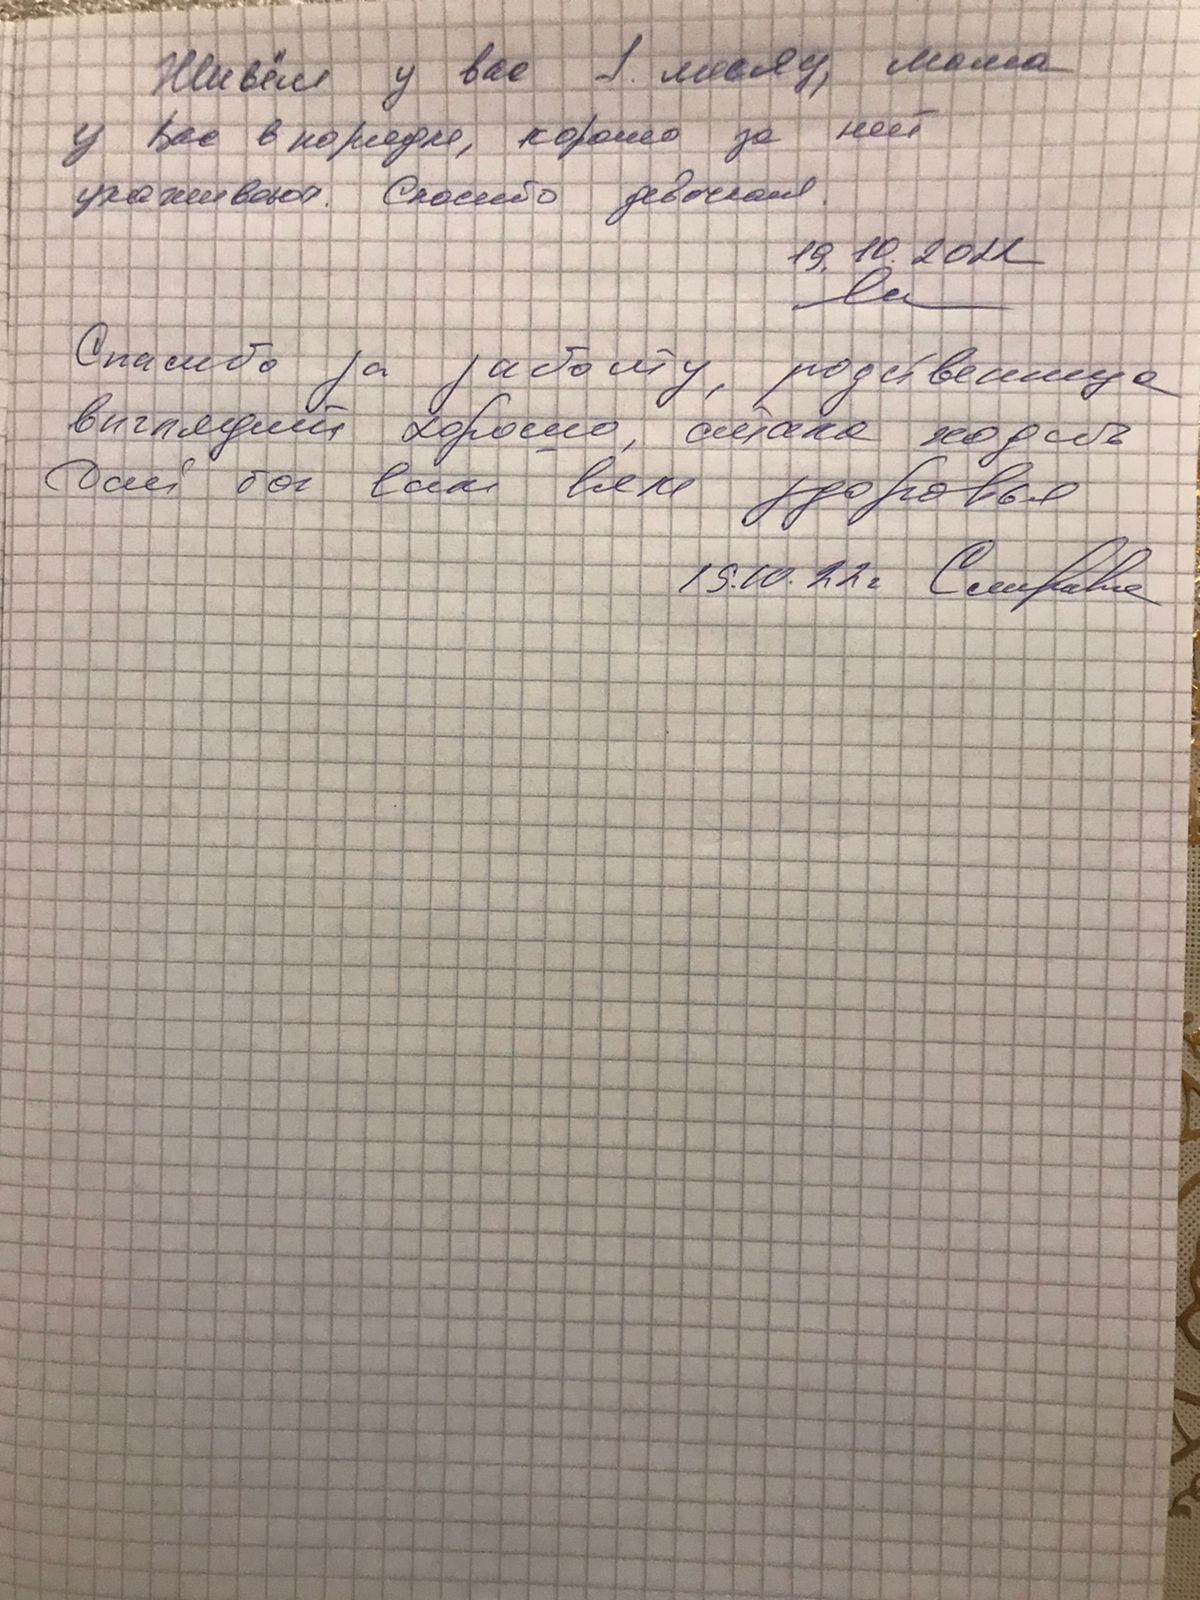 Живём у вас 1. месяц, мама
у Вас в порядке, хорошо за ней
ухаживают. Спасибо девочкам.
19.10.2022
Спасибо за заботу, родственница
выглядит хорошо, стала ходить
Дай бог вам всем здоровья
19.10.22г